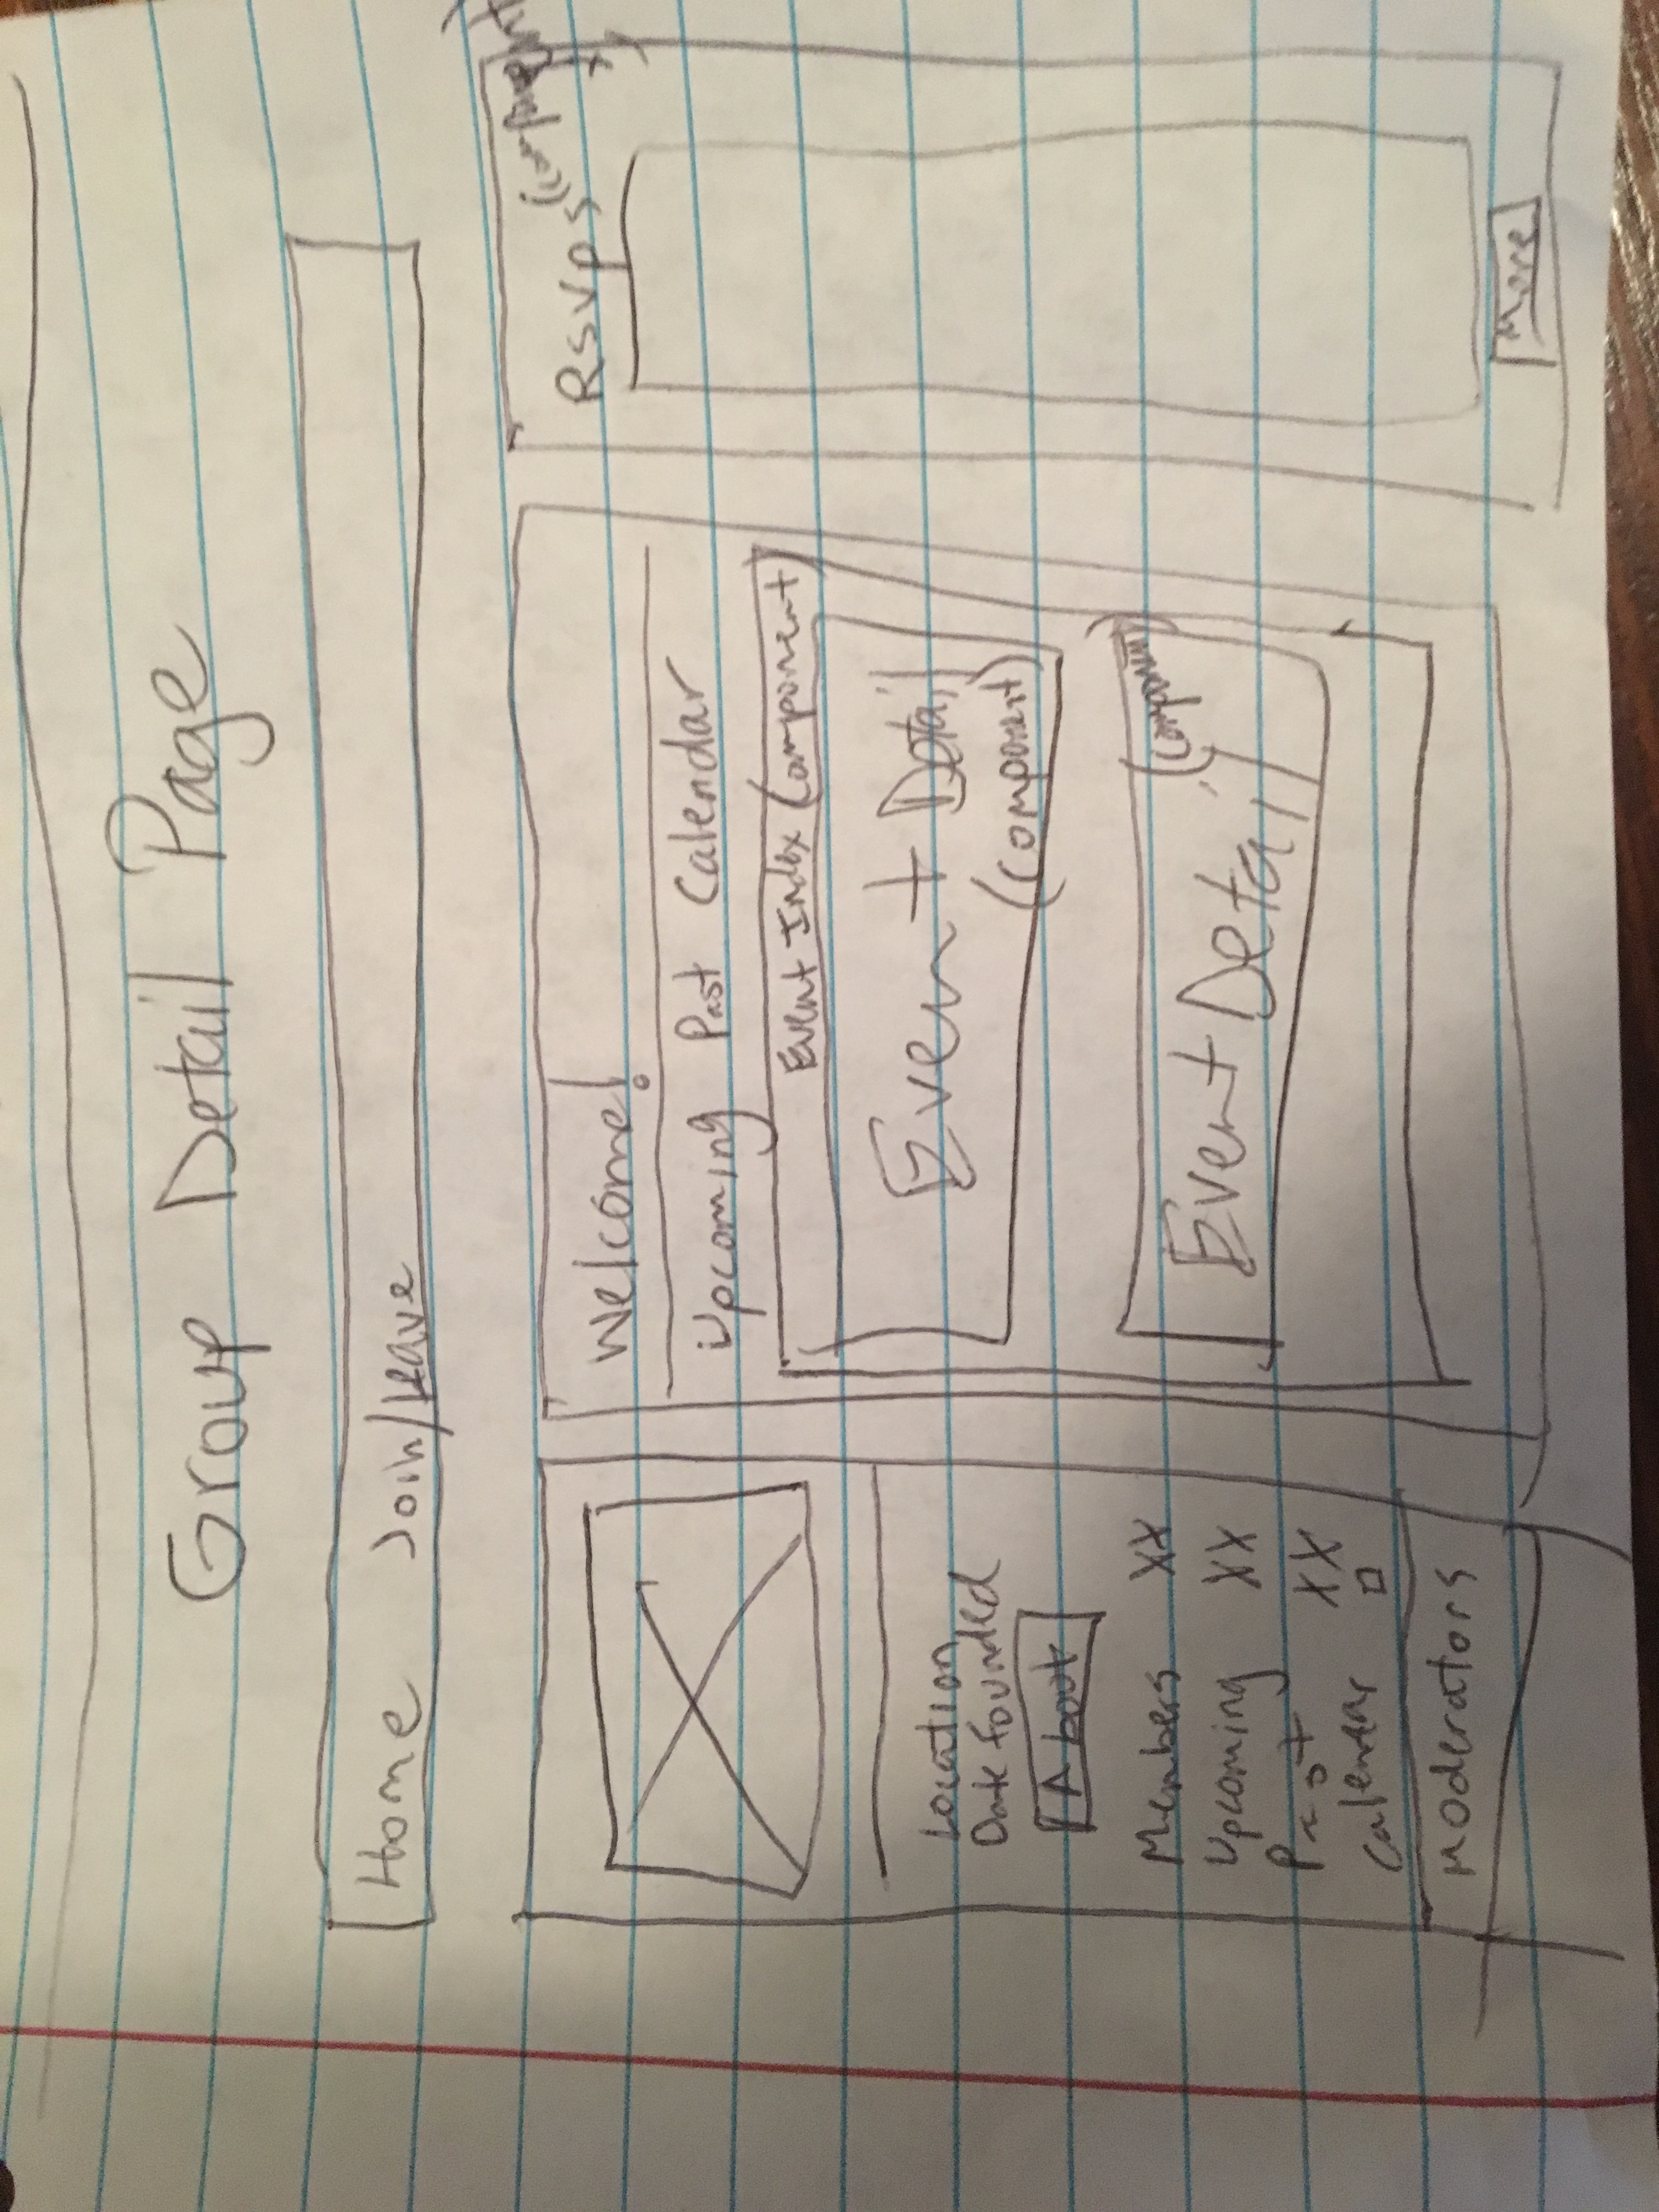 Group Detail Page
Home Join/Leave
Location
Date Founded
About
Members XX
Upcoming XX
Past XX
Calendar
Moderators
Welcome!
Upcoming Past Calendar
Event Index (component)
Event Detail
(component)
Event Detail (component)
Rsvps (component)
More